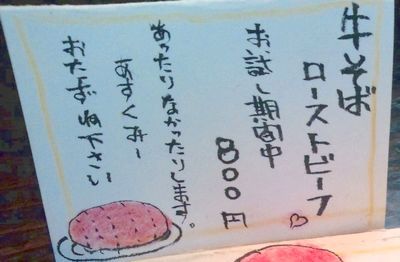 牛そば
ローストビーフ♡
お試し期間中
800円
あったりなかったりします。
おたずね下さい